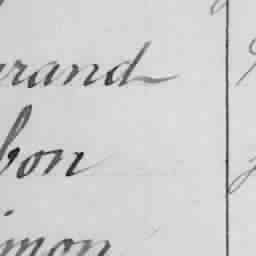 rand
bon
imon